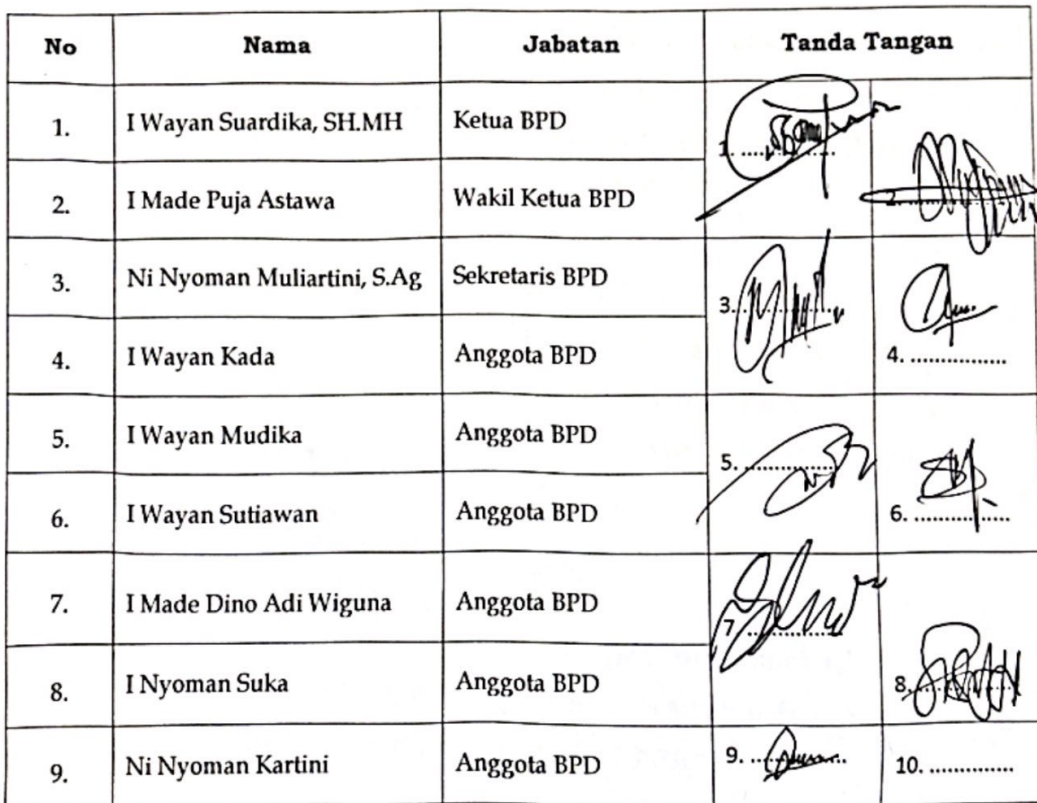 No Nama Jabatan Tanda Tangan
1. I Wayan Suardika, SH.MH Ketua BPD 1. ...............
2. I Made Puja Astawa Wakil Ketua BPD 2. ...............
3. Ni Nyoman Muliartini, S.Ag Sekretaris BPD 3. ...............
4. I Wayan Kada Anggota BPD 4. ...............
5. I Wayan Mudika Anggota BPD 5. ...............
6. I Wayan Sutiawan Anggota BPD 6. ...............
7. I Made Dino Adi Wiguna Anggota BPD 7 ...............
8. I Nyoman Suka Anggota BPD 8. ...............
9. Ni Nyoman Kartini Anggota BPD 9. ............... 10. ...............